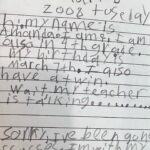 2008 tuseday
hi my name is
Amanda t am s. I am
also in 4th grade.
my birthday is
march 7th. I also
have a twin
wait my teacher
is talking..........
sorry ive been gone